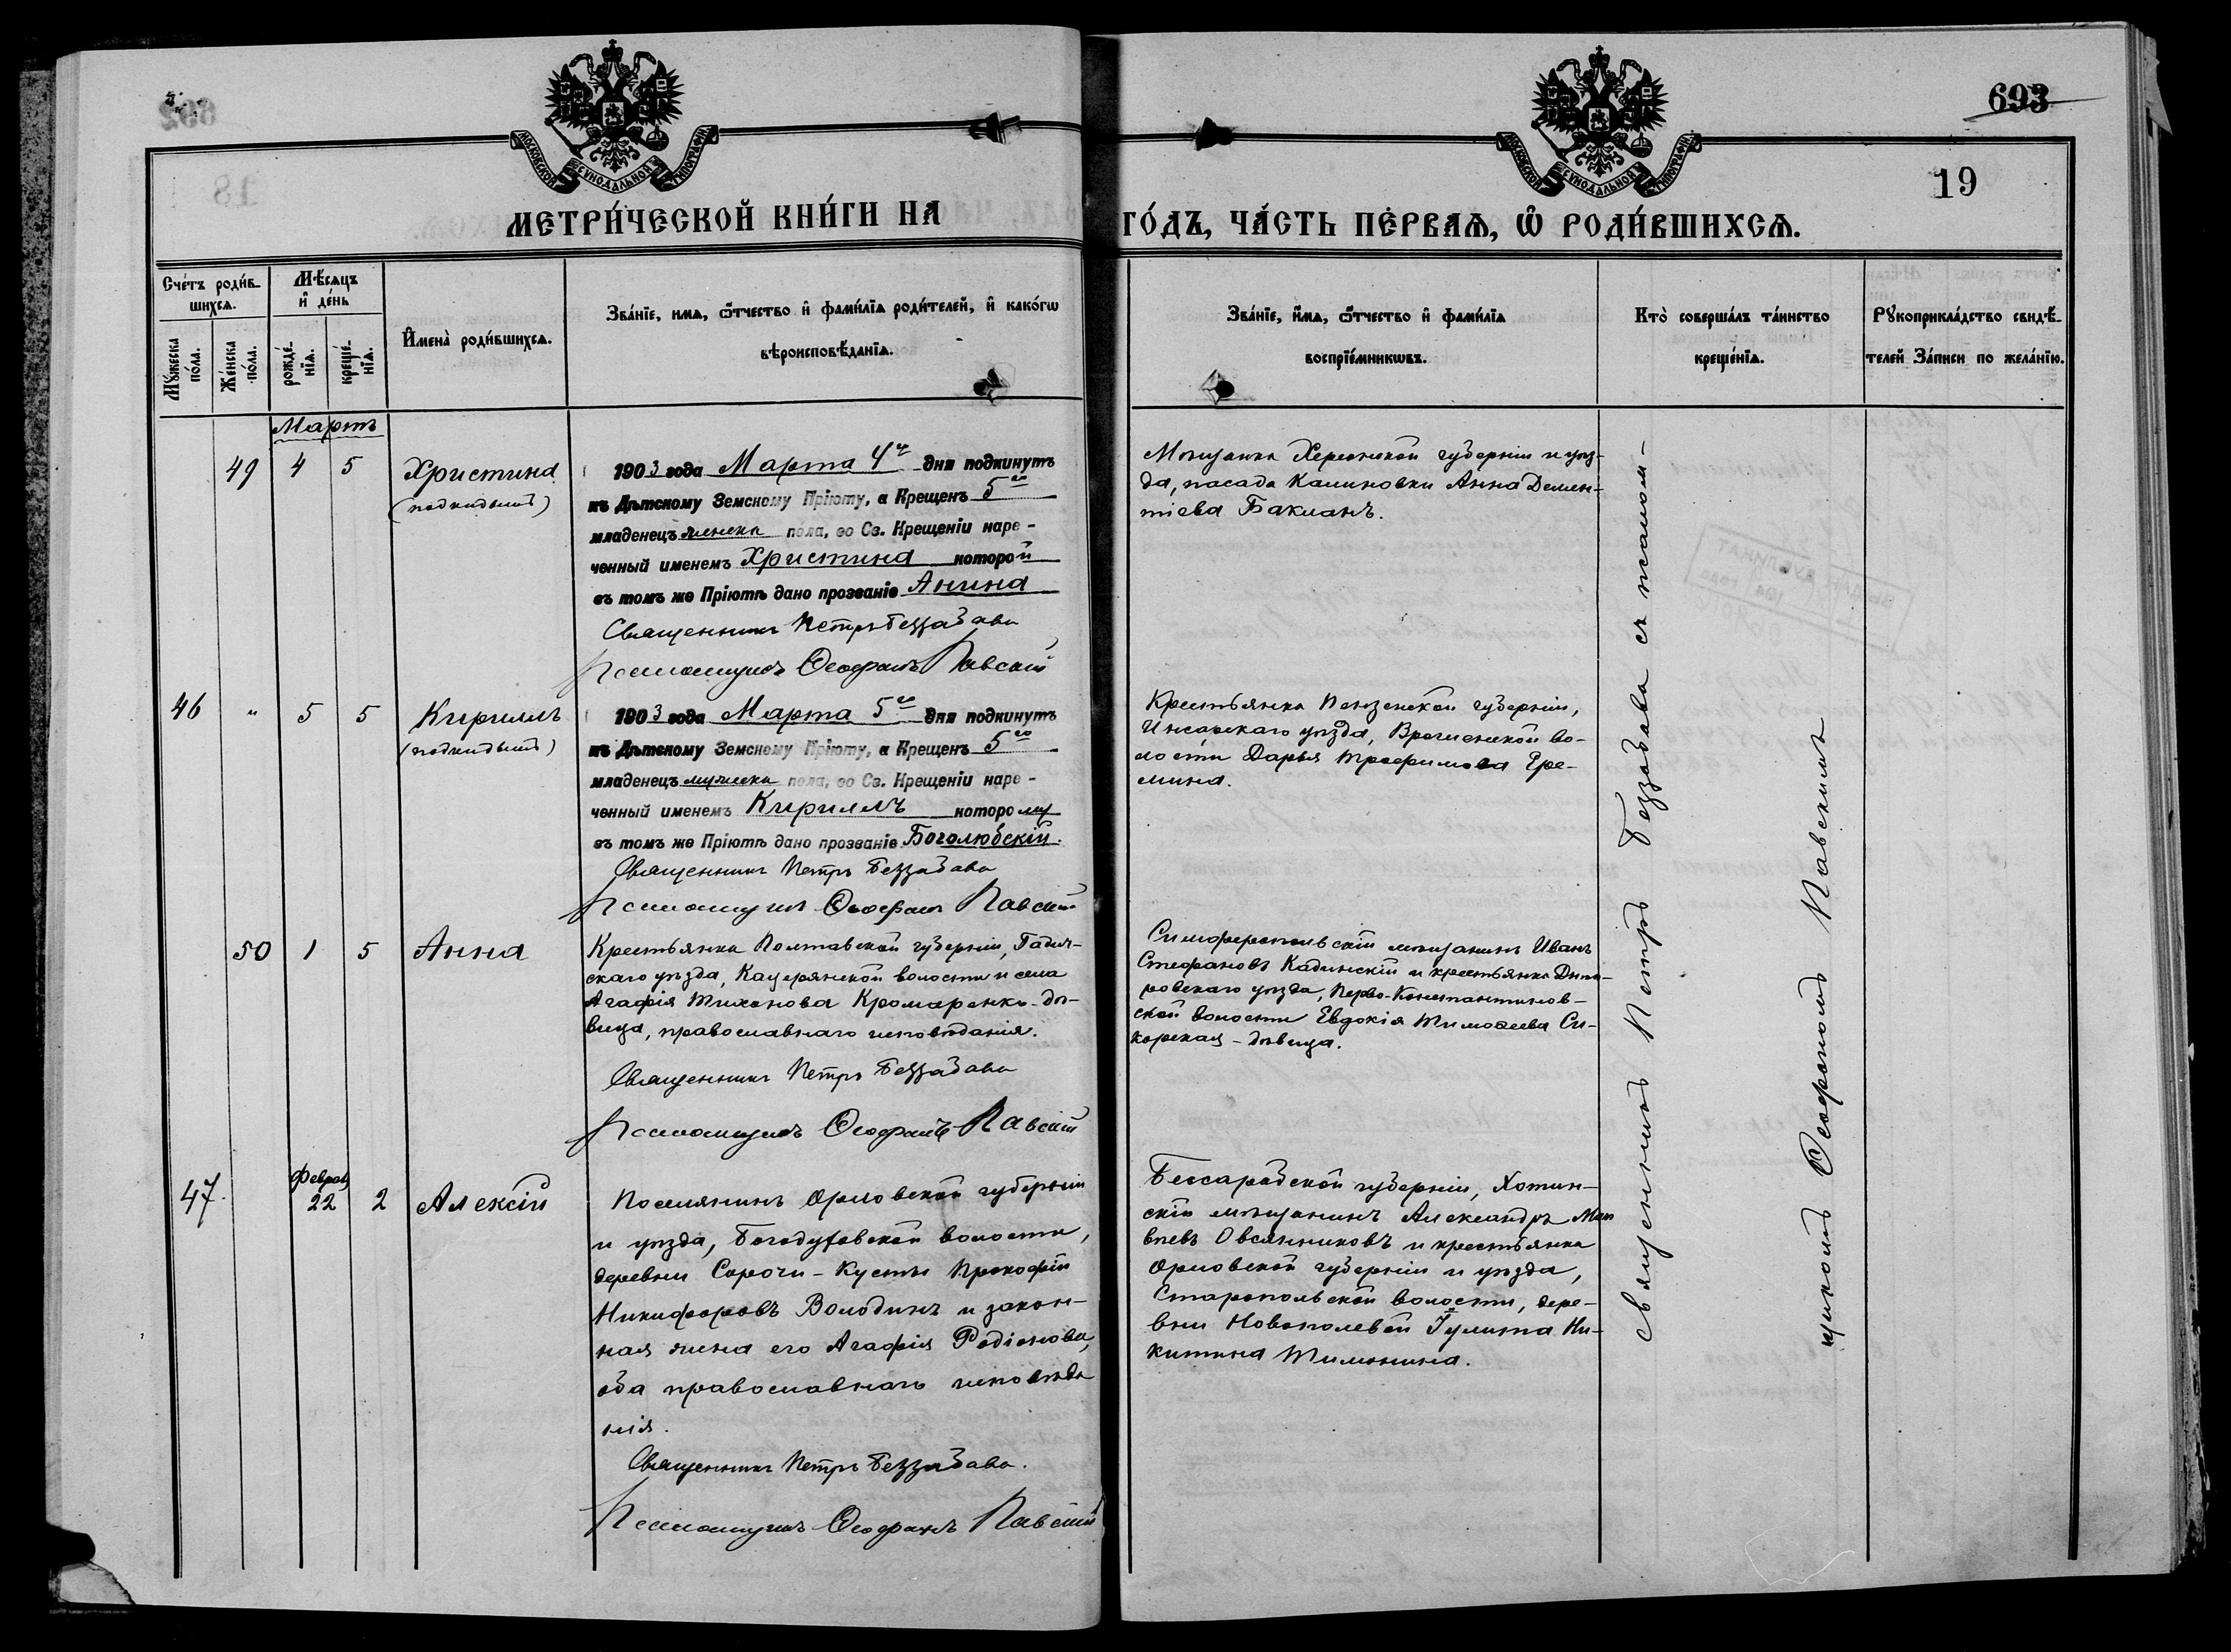 693
19
МОСКОВСКОЙ СѴНОДАЛЬНОЙ ТИПОГРАФІИ
МОСКОВСКОЙ СѴНОДАЛЬНОЙ ТИПОГРАФІИ
МЕТРИ́ЧЕСКОЙ КНИ́ГИ НА ГО́ДЪ, ЧА́СТЬ ПЕ́РВАѦ, Ѡ҆ РОДИ́ВШИХСѦ.
Сче́тъ роди́в-
шихсѧ.
Мꙋ́жеска по́ла.
Же́нска по́ла.
Мѣ́сѧцъ
и҆ де́нь
рожде́-
нїѧ.
креще́-
нїѧ.
И҆мена̀ роди́вшихсѧ.
Зва́нїе, имѧ, ѻ҆́тчество и҆ фами́лїѧ роди́телей, и҆ како́гѡ
вѣроисповѣ́данїѧ.
Зва́нїе, и҆́мѧ, ѻ҆́тчество и҆ фами́лїѧ
воспрїе́мникѡвъ.
Кто̀ соверша́лъ та́инство
креще́нїѧ.
Рꙋкоприкла́дство свидѣ́-
телей за́писи по жела́нїю.
Мартъ
49 4 5 Христина
(подкидышъ)
1903 года Марта 4го дня подкинутъ
къ Дѣтскому Земскому Пріюту, а Крещенъ 5го
младенецъ женска пола, во Св. Крещеніи наре-
ченный именемъ Христина которой
въ томъ же Пріютѣ дано прозваніе Анина
Священникъ Петръ Беззабава
Псаломщикъ Ѳеофанъ Павскій
Мѣщанка Херсонской губерніи и уѣз-
да, посада Калиновки Анна Демен-
тіева Бакланъ.
46 " 5 5 Кириллъ
(подкидышъ)
1903 года Марта 5го дня подкинутъ
къ Дѣтскому Земскому Пріюту, а Крещенъ 5го
младенецъ мужеска пола, во Св. Крещеніи наре-
ченный именемъ Кириллъ которому
въ томъ же Пріютѣ дано прозваніе Боголюбскій.
Священникъ Петръ Беззабава
Псаломщикъ Ѳеофанъ Павскій
Крестьянка Пензенской губерніи,
Инсарскаго уѣзда, во-
лости Дарья Трофимова Ере-
мина.
50 1 5 Анна
Крестьянка Полтавской губерніи, Гадяч-
скаго уѣзда, волости и села
Агафія Тихонова Кромаренко-дѣ-
вица, православнаго исповѣданія.
Священникъ Петръ Беззабава
Псаломщикъ Ѳеофанъ Павскій
Симферопольскій мѣщанинъ Иванъ
Стефановъ Кадинскій и крестьянка Днѣп-
ровскаго уѣзда, Перво-Константинов-
ской волости Евдокія Тимоѳеева Си-
корская-дѣвица.
Февраль
47. 22 2 Алексій
Поселянинъ Орловской губерніи
и уѣзда, Богодуховской волости,
деревни Сорочи-Кусты Прокофій
Никифоровъ Володинъ и закон-
ная жена его Агафія Родіонова,
оба православнаго исповѣда
нія.
Священникъ Петръ Беззабава.
Псаломщикъ Ѳеофанъ Павскій
Бессарабской губерніи, Хотин-
скій мѣщанинъ Александръ Мат
вѣевъ Овсянниковъ и крестьянка
Орловской губерніи и уѣзда,
волости, дере-
вни Іулита Ни-
китина Тимонина.
Священникъ Петръ Беззабава съ псалом-
щикомъ Ѳеофаномъ Павскимъ